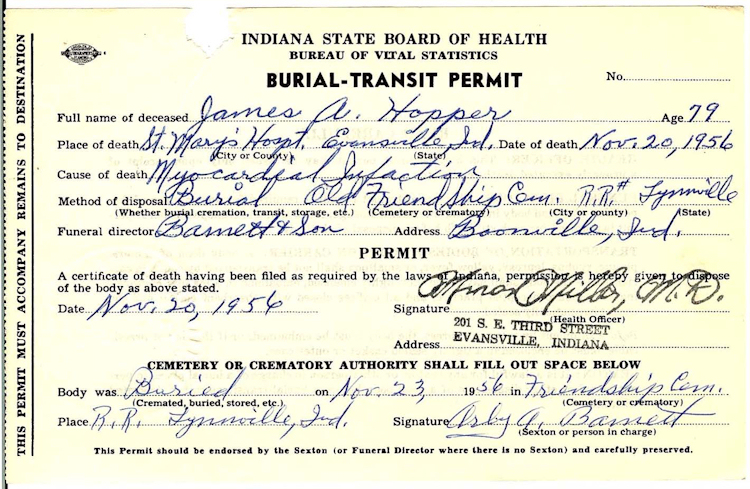 INDIANA STATE BOARD OF HEALTH
BUREAU OF VITAL STATISTICS
BURIAL-TRANSIT PERMIT
No.
Full name of deceased James A. Hopper Age 79
Place of death St. Mary's Hospt. Evansville, Ind. Date of death Nov. 20, 1956
(City or County) (State)
Cause of death Myocardial Infaction
Method of disposal Burial Old Friendship Cem. R.R.# Lynnville
(Whether burial cremation, transit, storage, etc.) (Cemetery or crematory) (City or county) (State)
Funeral director Barnett & Son Address Boonville, Ind.
PERMIT
A certificate of death having been filed as required by the laws of Indiana, permission is hereby given to dispose
of the body as above stated.
Date Nov. 20, 1956 Signature Minor Miller, M.D.
(Health Officer)
201 S. E. THIRD STREET
Address EVANSVILLE, INDIANA
CEMETERY OR CREMATORY AUTHORITY SHALL FILL OUT SPACE BELOW
Body was Buried on Nov. 23, 1956 in Friendship Cem.
(Cremated, buried, stored, etc.) (Cemetery or crematory)
Place R.R. Lynnville, Ind. Signature Arby A. Barnett
(Sexton or person in charge)
This Permit should be endorsed by the Sexton (or Funeral Director where there is no Sexton) and carefully preserved.
THIS PERMIT MUST ACCOMPANY REMAINS TO DESTINATION